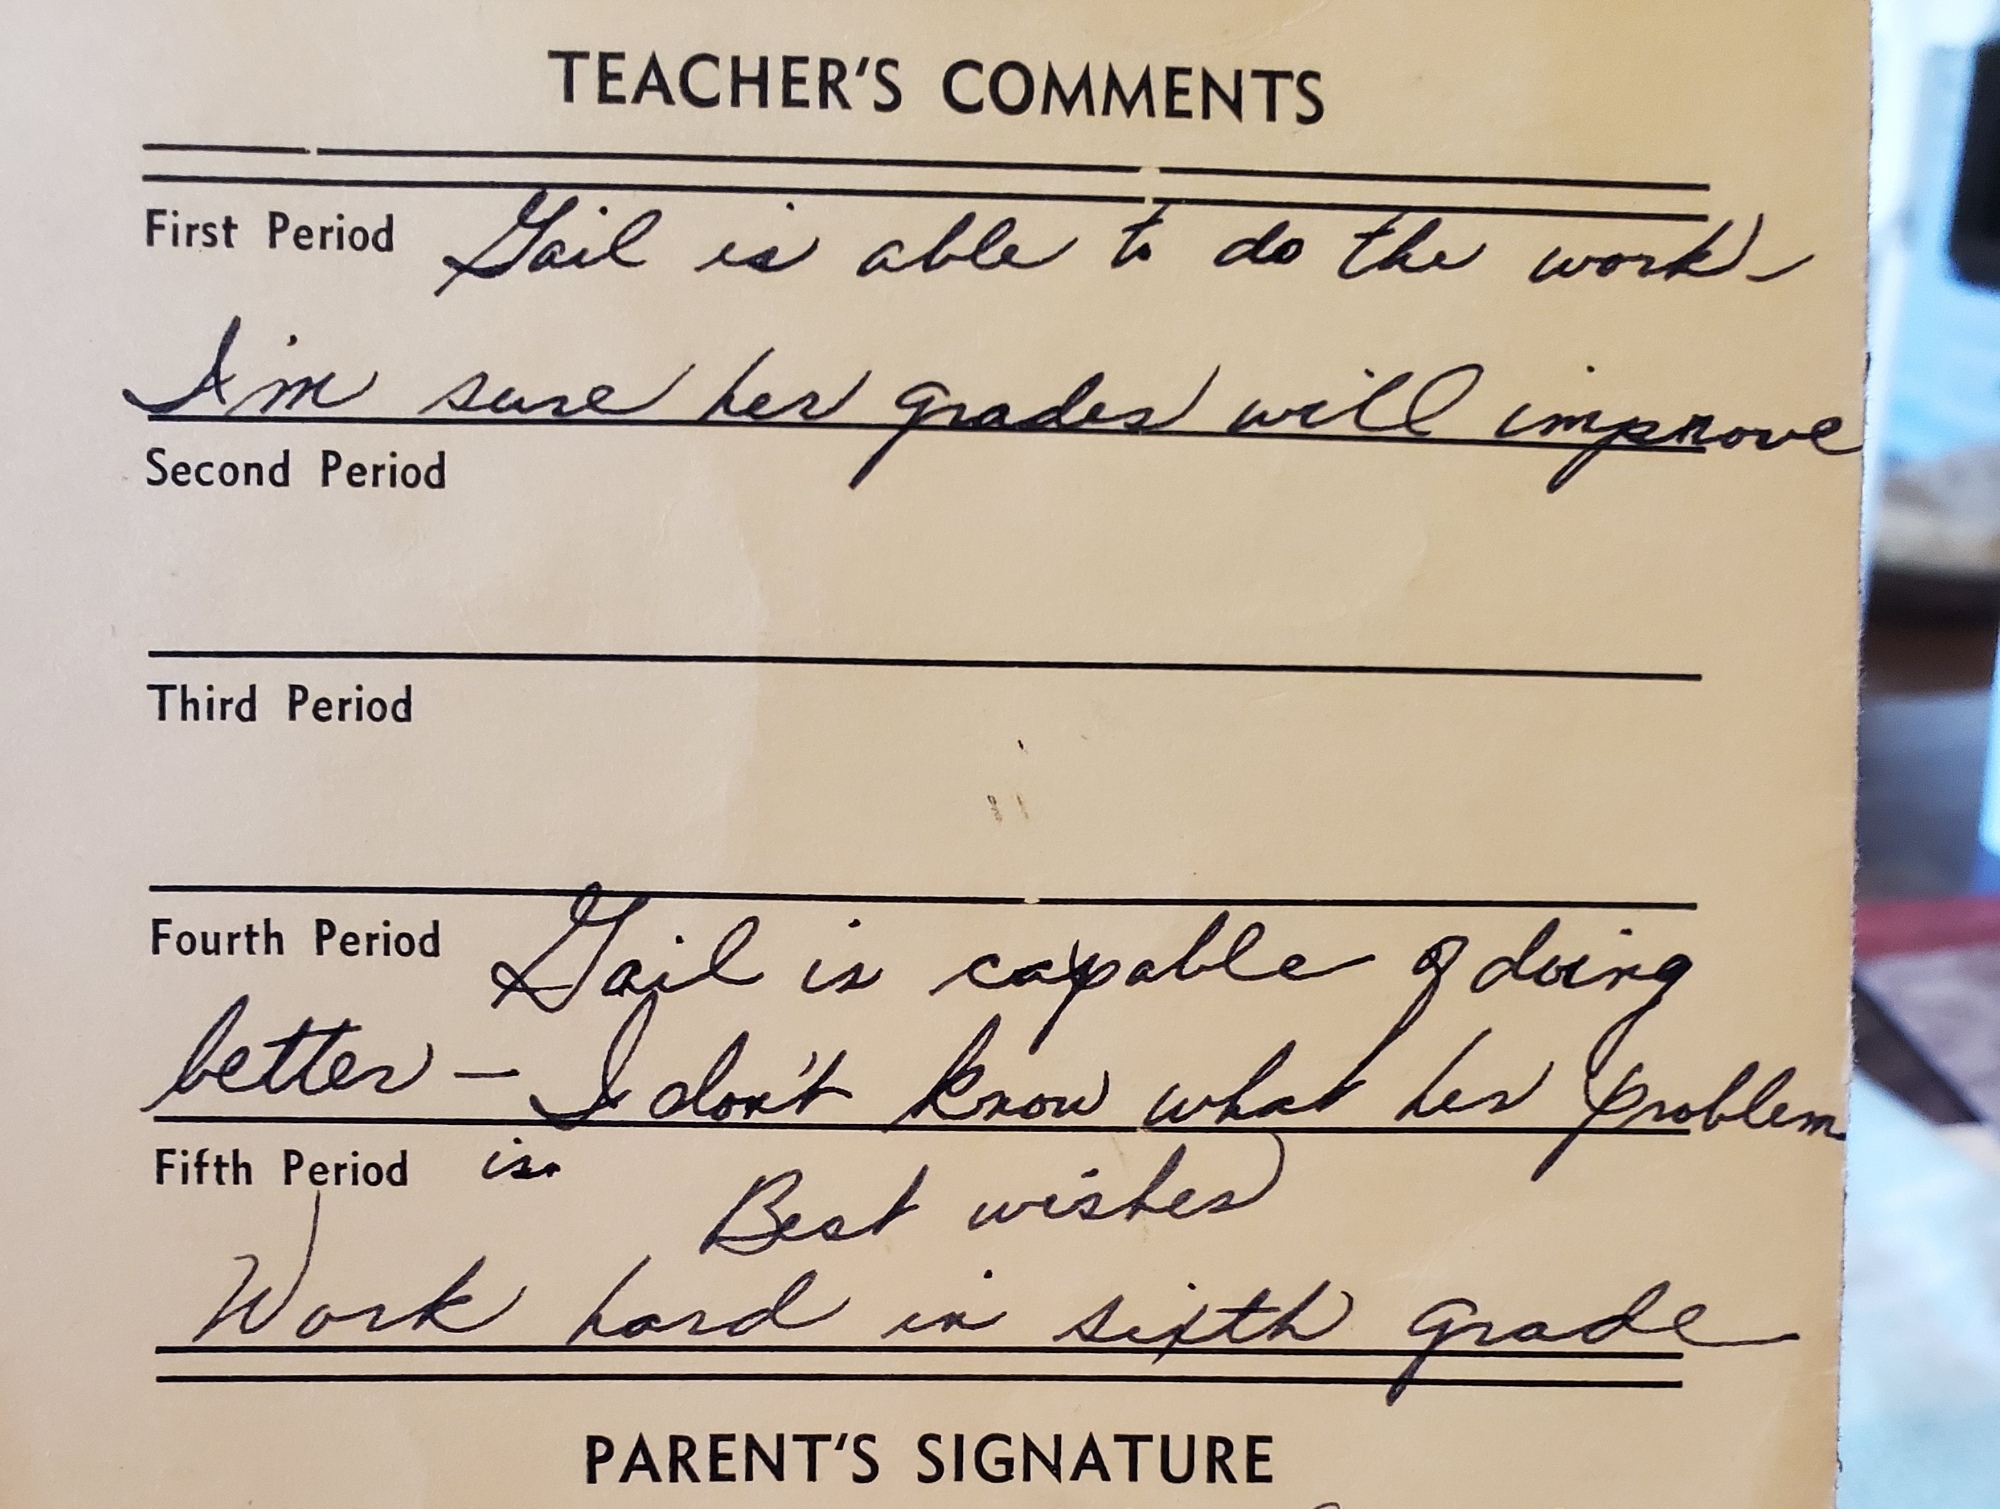 TEACHER'S COMMENTS
First Period Gail is able to do the work -
I'm sure her grades will improve
Second Period
Third Period
Fourth Period Gail is capable of doing
better - I don't know what her problem
Fifth Period is. Best wishes
Work hard in sixth grade
PARENT'S SIGNATURE